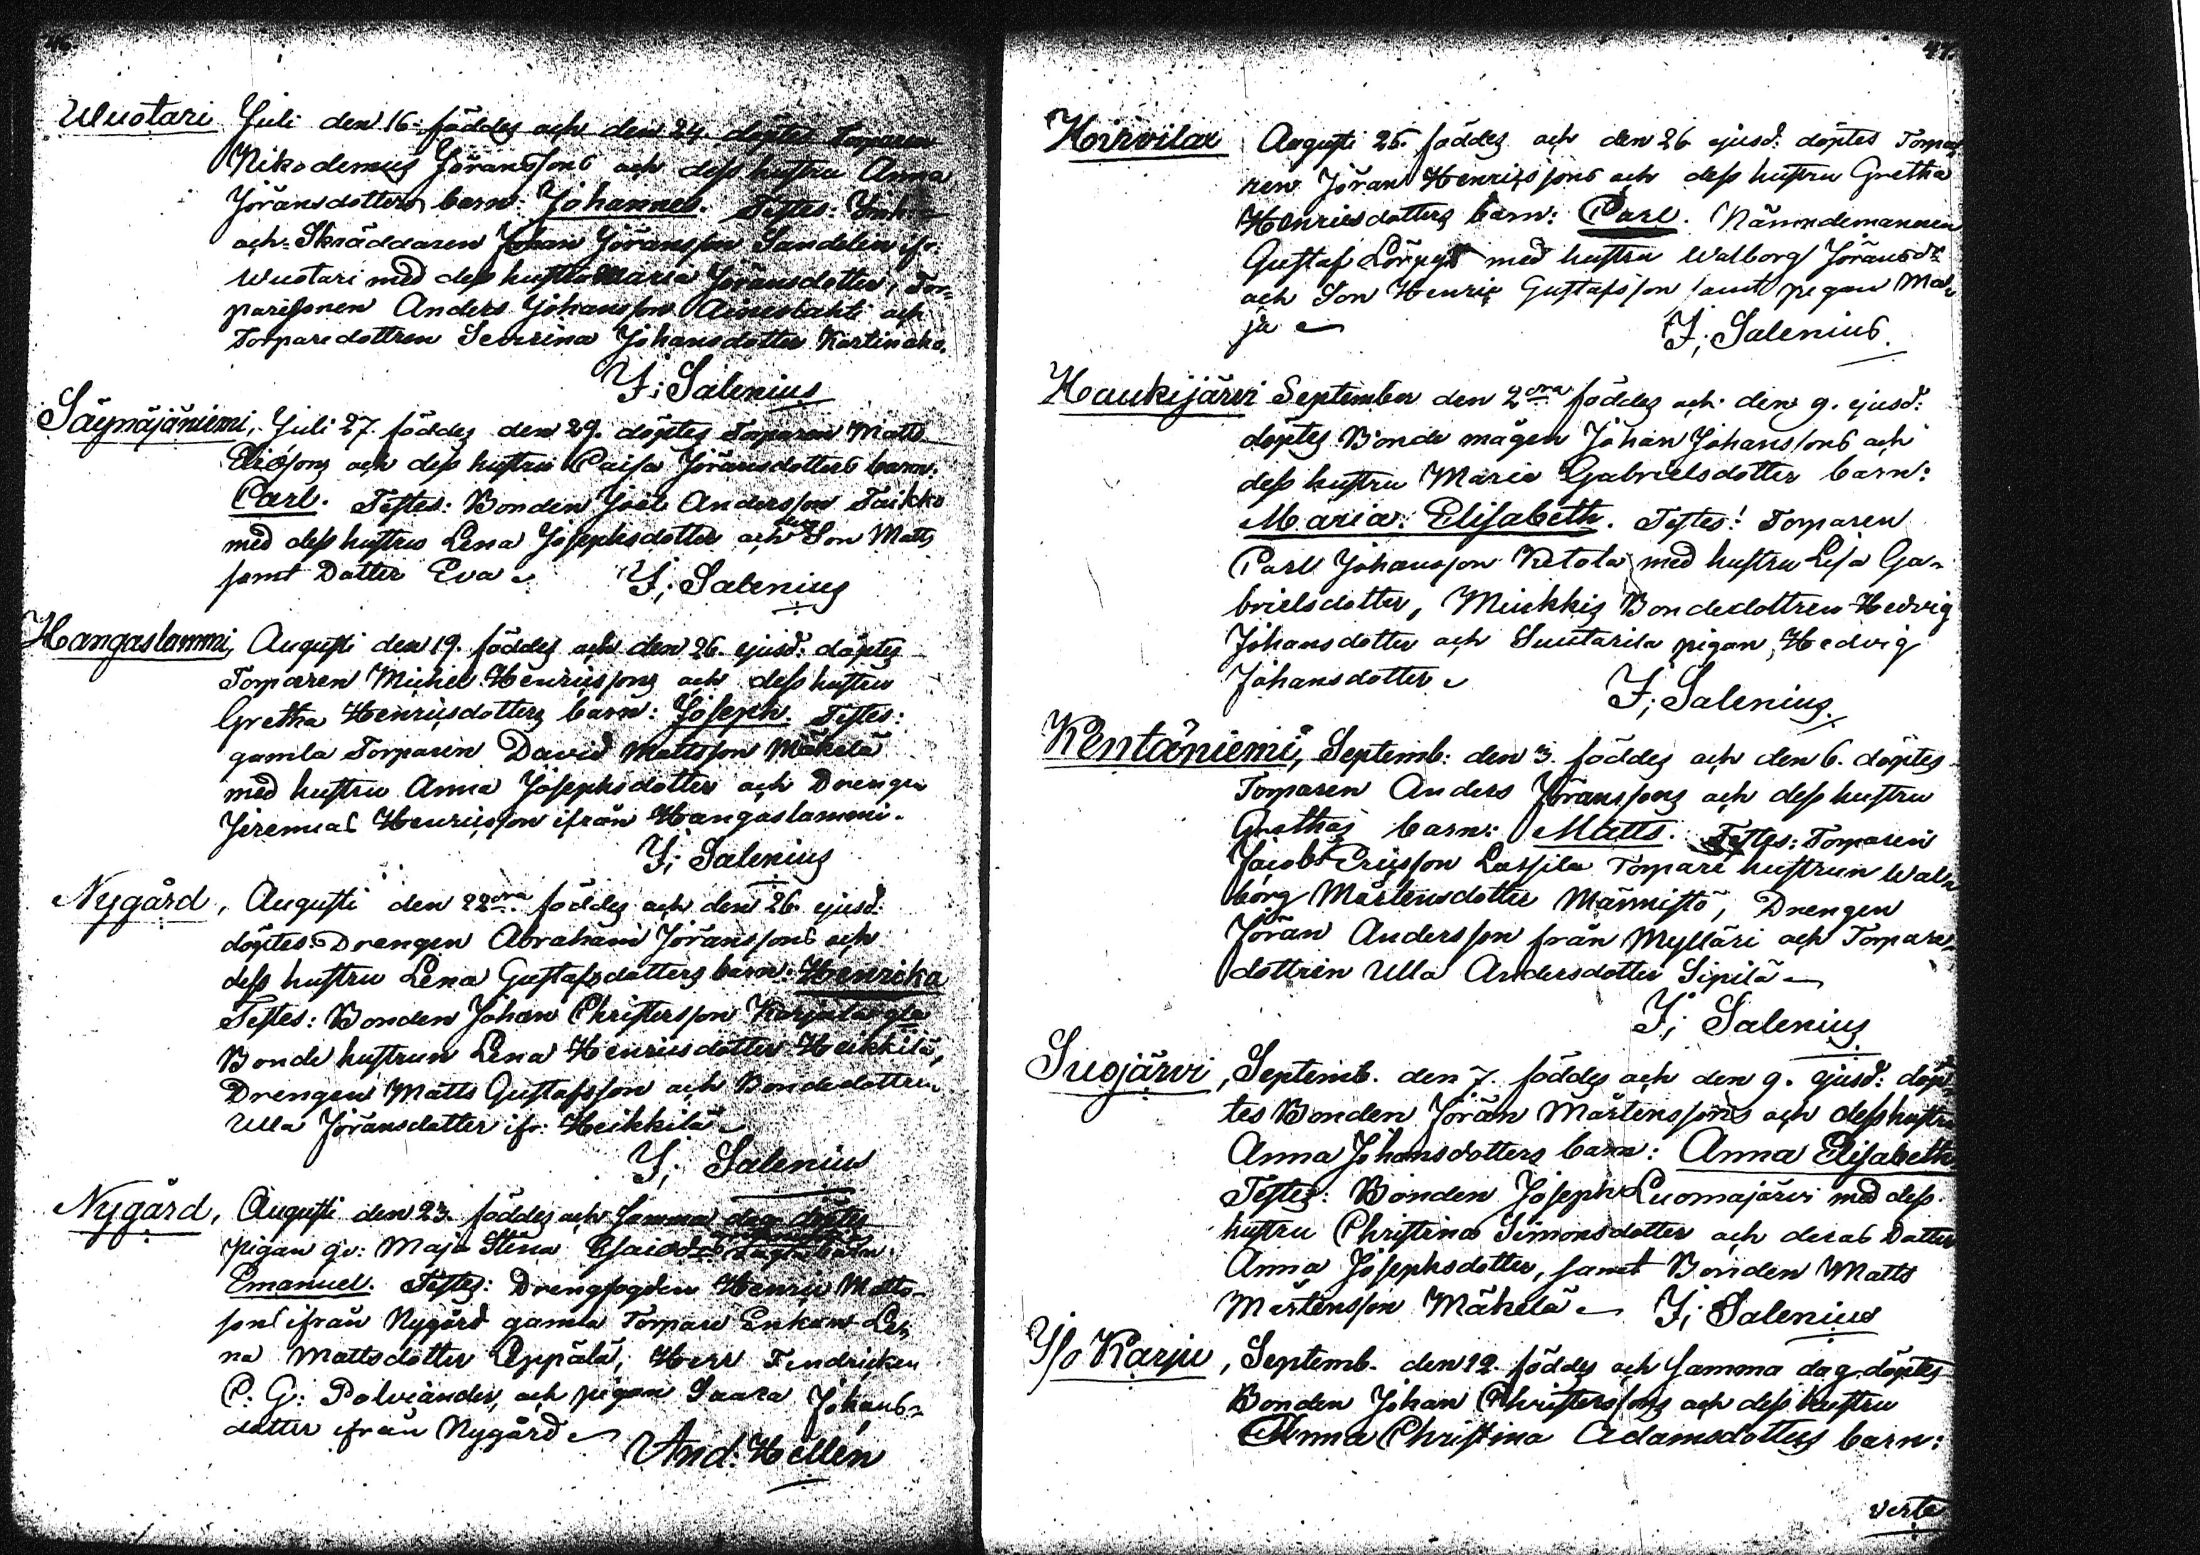 46.
Wuotari Juli den 16. föddes och den 24. döptes Torparen
Nikodemus Jöranssons och dess hustru Anna
Jöransdotters barn: Johannes. Testes: Inh:
och Skräddaren Johan Jöransson Sandelin ifr.
Wuotari med dess hustru Maria Jöransdotter, Tor-
paresonen Anders Johansson och
Torparedottren Severina Johansdotter
I; Salenius
Säynäjäniemi, Juli 27. föddes den 29. döptes Torparen Matts
Ericsons och dess hustru Caisa Jöransdotters barn:
Carl. Testes: Bonden Joël Andersson Taikko
med dess hustru Lena Josephsdotter och des Son Matts
samt Dotter Eva
I; Salenius
Hangaslammi, Augusti den 19. föddes och den 26. ejusd: döptes
Torparen Michel Henricssons och dess hustru
Gretha Henricsdotters barn: Joseph. Testes:
gamla Torparen David Mattsson Mäkelä
med hustru Anna Josephsdotter och Drengen
Jeremias Henricsson ifrån Hangaslammi.
I; Salenius
Nygård, Augusti den 22dra föddes och den 26. ejusd:
döptes Drengen Abraham Jöranssons och
dess hustru Lena Gustafsdotters barn: Henrika
Testes: Bonden Johan Christersson
Bonde hustrun Lena Henricsdotter Heikkilä,
Drengen Matts Gustafsson och Bondedottren
Ulla Jöransdotter ifr: Heikkilä
I; Salenius
Nygård, Augusti den 23. föddes och samma dag döptes
pigan qv: Maja Stina
Emanuel. Testes: Drengfogden Henric Matts-
son ifrån Nygård gamla Torpare Enkan Le-
na Mattsdotter Eppälä, Herr Fendricken
C: G: Polviander, och pigan Saara Johans-
dotter ifrån Nygård
And: Hellén
47.
Koirvilax Augusti 25. föddes och den 26 ejusd: döptes Torpa-
ren Jöran Henricssons och dess hustru Gretha
Henricsdotters barn: Carl. Nämndemannen
Gustaf med hustru Walborg Jöransdr
och Son Henric Gustafsson samt pigan Ma-
ja
I; Salenius.
Haukijärvi September den 2dra föddes och den 9. ejusd:
döptes Bonde mågen Johan Johanssons och
dess hustru Maria Gabrielsdotter barn:
Maria Elisabeth. Testes: Torparen
Carl Johansson Ketola med hustru Lisa Ga-
brielsdotter, Mickkis Bondedottren Hedvig
Johansdotter och Suutarila pigan Hedvig
Johansdotter
I; Salenius.
Kentäniemi, Septemb: den 3. föddes och den 6. döptes
Torparen Anders Jöranssons och dess hustru
Grethas barn: Matts. Testes: Torparen
Jacob Ericsson Lassila Torpare hustrun Wal-
borg Mårtensdotter Männistö, Drengen
Jöran Andersson från Mylläri och Torpare-
dottren Ulla Andersdotter Sipilä
I; Salenius
Suojärvi, Septemb. den 7. föddes och den 9. ejusd: döp-
tes Bonden Jöran Mårtenssons och dess hustru
Anna Johansdotters barn: Anna Elisabeth
Testes: Bonden Joseph Luomajärvi med dess
hustru Christina Simonsdotter och deras Dotter
Anna Josephsdotter, samt Bonden Matts
Mårtensson Mäkelä
I; Salenius
Iso Karju, Septemb. den 12. föddes och samma dag döptes
Bonden Johan Christerssons och dess hustru
Anna Christina Adamsdotters barn:
verte